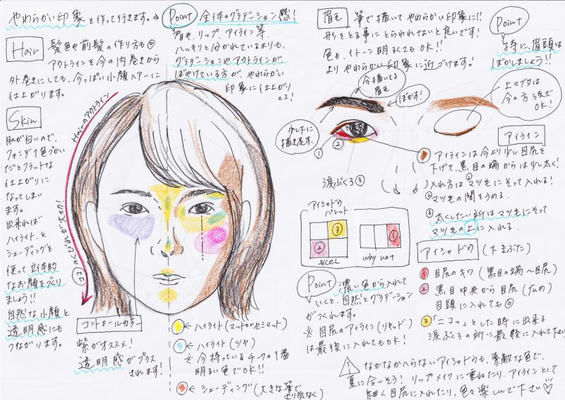 やわらかい印象を作って行きます。
Point 全体のグラデーション感!
眉や、リップ、アイライン等、
ハッキリと分かれているよりも、
グラデーションやアウトラインが
ぼやけている方が、やわらかい
印象に仕上がり
ます
Hair
髪色や前髪の作り方も
アウトラインを今の内巻きから
外巻きにしても、今っぽい小顔ヘアーに
仕上がります。
Hairのアウトライン
Skin
肌が白いので、
ファンデ1色づかい
だとフラットな
仕上りに
なってしまい
ます。
出来れば
ハイライトと
シェーディングを
使って立体的
なお顔を作り
ましょう!!
自然な小顔と
透明感にも
つながります。
コントロールカラー
紫がオススメ!
透明感がプラス
されます!
ハイライト(マットorセミマット)
ハイライト(ツヤ)
※今持っているチークの1番
明るい色でOK!!
シェーディング(大きな筆で
眉毛
筆で描いてやわらかい印象に!!
形をとる事にとらわれないと良いです!
色も、1トーン明るくてもOK!!
よりやわらかい印象に近づけます。
Point
特に、眉頭は
ぼかしましょう!!
今描いてる
眉毛
ぼかす!
少し下に
描き足す。
① ②
上マブタは
今の方法で
OK!
アイライン
① アイラインは今より少し目尻を
下げて、黒目の端からは少し太く!
入れ方は①マツ毛にそって入れる!
②マツ毛の間をうめる。
③太くしたい所はマツ毛にそって
マツ毛の上に入れる。
涙ぶくろ③
アイシャドウ
パレット
excel
why not
アイシャドウ(下まぶた)
① 目尻のキワ(黒目の端〜目尻)
② 黒目中央から目尻(広め)
目頭に入れても
③ 「ニコッ」とした時に出来る
涙ぶくろの所に最後に入れて下さい
Point
濃い色から入れて
いくと、自然とグラデーション
がつくれます。
※目尻のアイライン(リキッド)
は最後に入れてもOK!
なかなかへらないアイシャドウも、素敵な色で、
夏に合いそう!リップメイクに重ねたり、アイラインとして
細く目尻に入れたり、色々楽しんで下さい♡